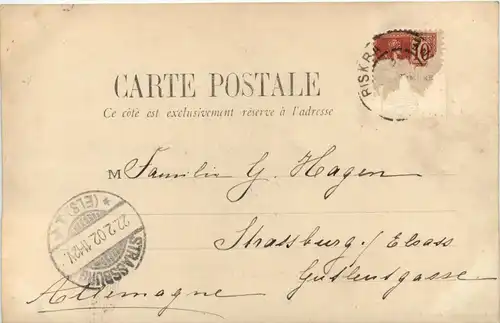 BISKRA
10
CARTE POSTALE
Ce côté est exclusivement réservé à l'adresse
M Familie G. Hagen
Strassburg / Elsass
Gutleutgasse
Allemagne
STRASSBURG
22.2.02. 11-12V.
* (ELS.) 1 *